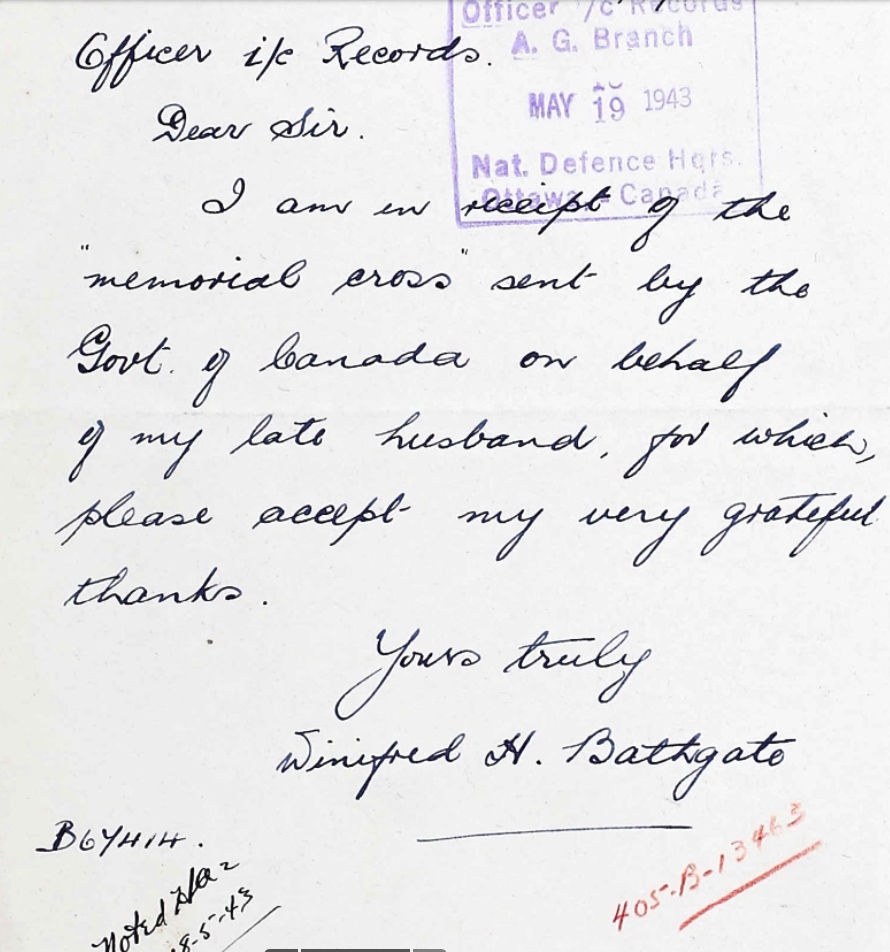 Officer i/c Records
A. G. Branch
MAY 19 1943
Nat. Defence Hqrs.
Ottawa - Canada
Officer i/c Records.
Dear Sir.
I am in receipt of the
"memorial cross" sent by the
Govt. of Canada on behalf
of my late husband, for which,
please accept my very grateful
thanks.
Yours truly
Winifred H. Bathgate
B67414.
405-B-13463
Noted
8-5-43